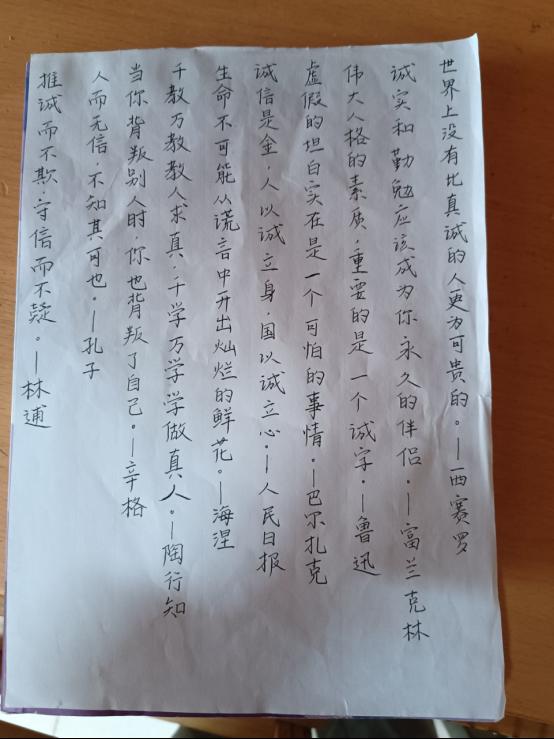 世界上没有比真诚的人更为可贵的。—西赛罗
诚实和勤勉应该成为你永久的伴侣。—富兰克林
伟大人格的素质，重要的是一个诚字。—鲁迅
虚假的坦白实在是一个可怕的事情。—巴尔扎克
诚信是金，人以诚立身，国以诚立心。—人民日报
生命不可能从谎言中开出灿烂的鲜花。—海涅
千教万教教人求真，千学万学学做真人。—陶行知
当你背叛别人时，你也背叛了自己。—辛格
人而无信，不知其可也。—孔子
推诚而不欺，守信而不疑。—林逋